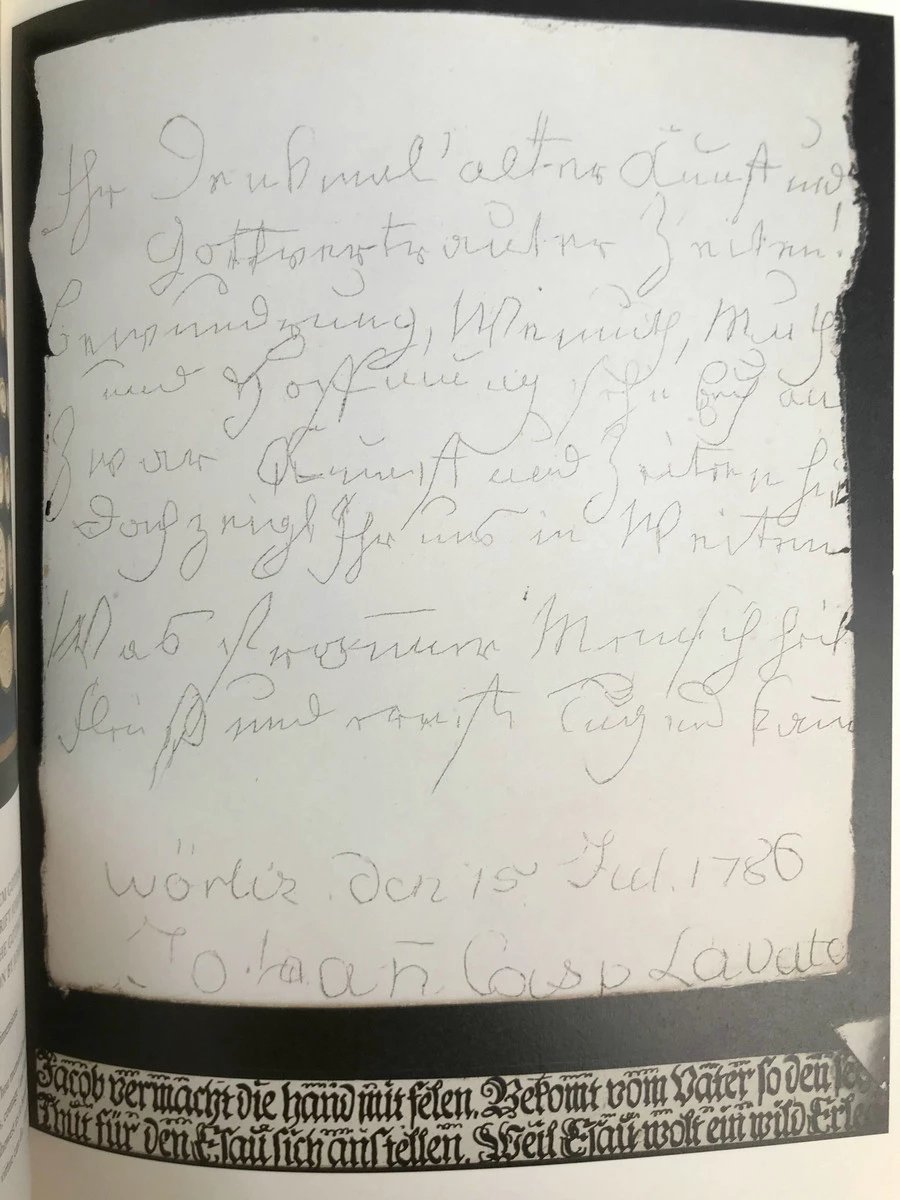 Ihr Denkmal' alter Kunst und
Gottvertrauter Zeiten!
bewundrung, Wemuth, Muth
und Hoffnung sehn Euch an
Zwar Kunst und Zeiten
doch zeigt Ihr uns in Weiten
Was from̄er Menschheit
fleiß und ernste Tugend kan̄
wörliz. den 15 Jul. 1786
Johan̄ Casp Lavate
Jacob vermacht die hand mit felen. Bekomt vom Vater so den
für den Esau sich anstellen. Weil Esau wolt ein wild